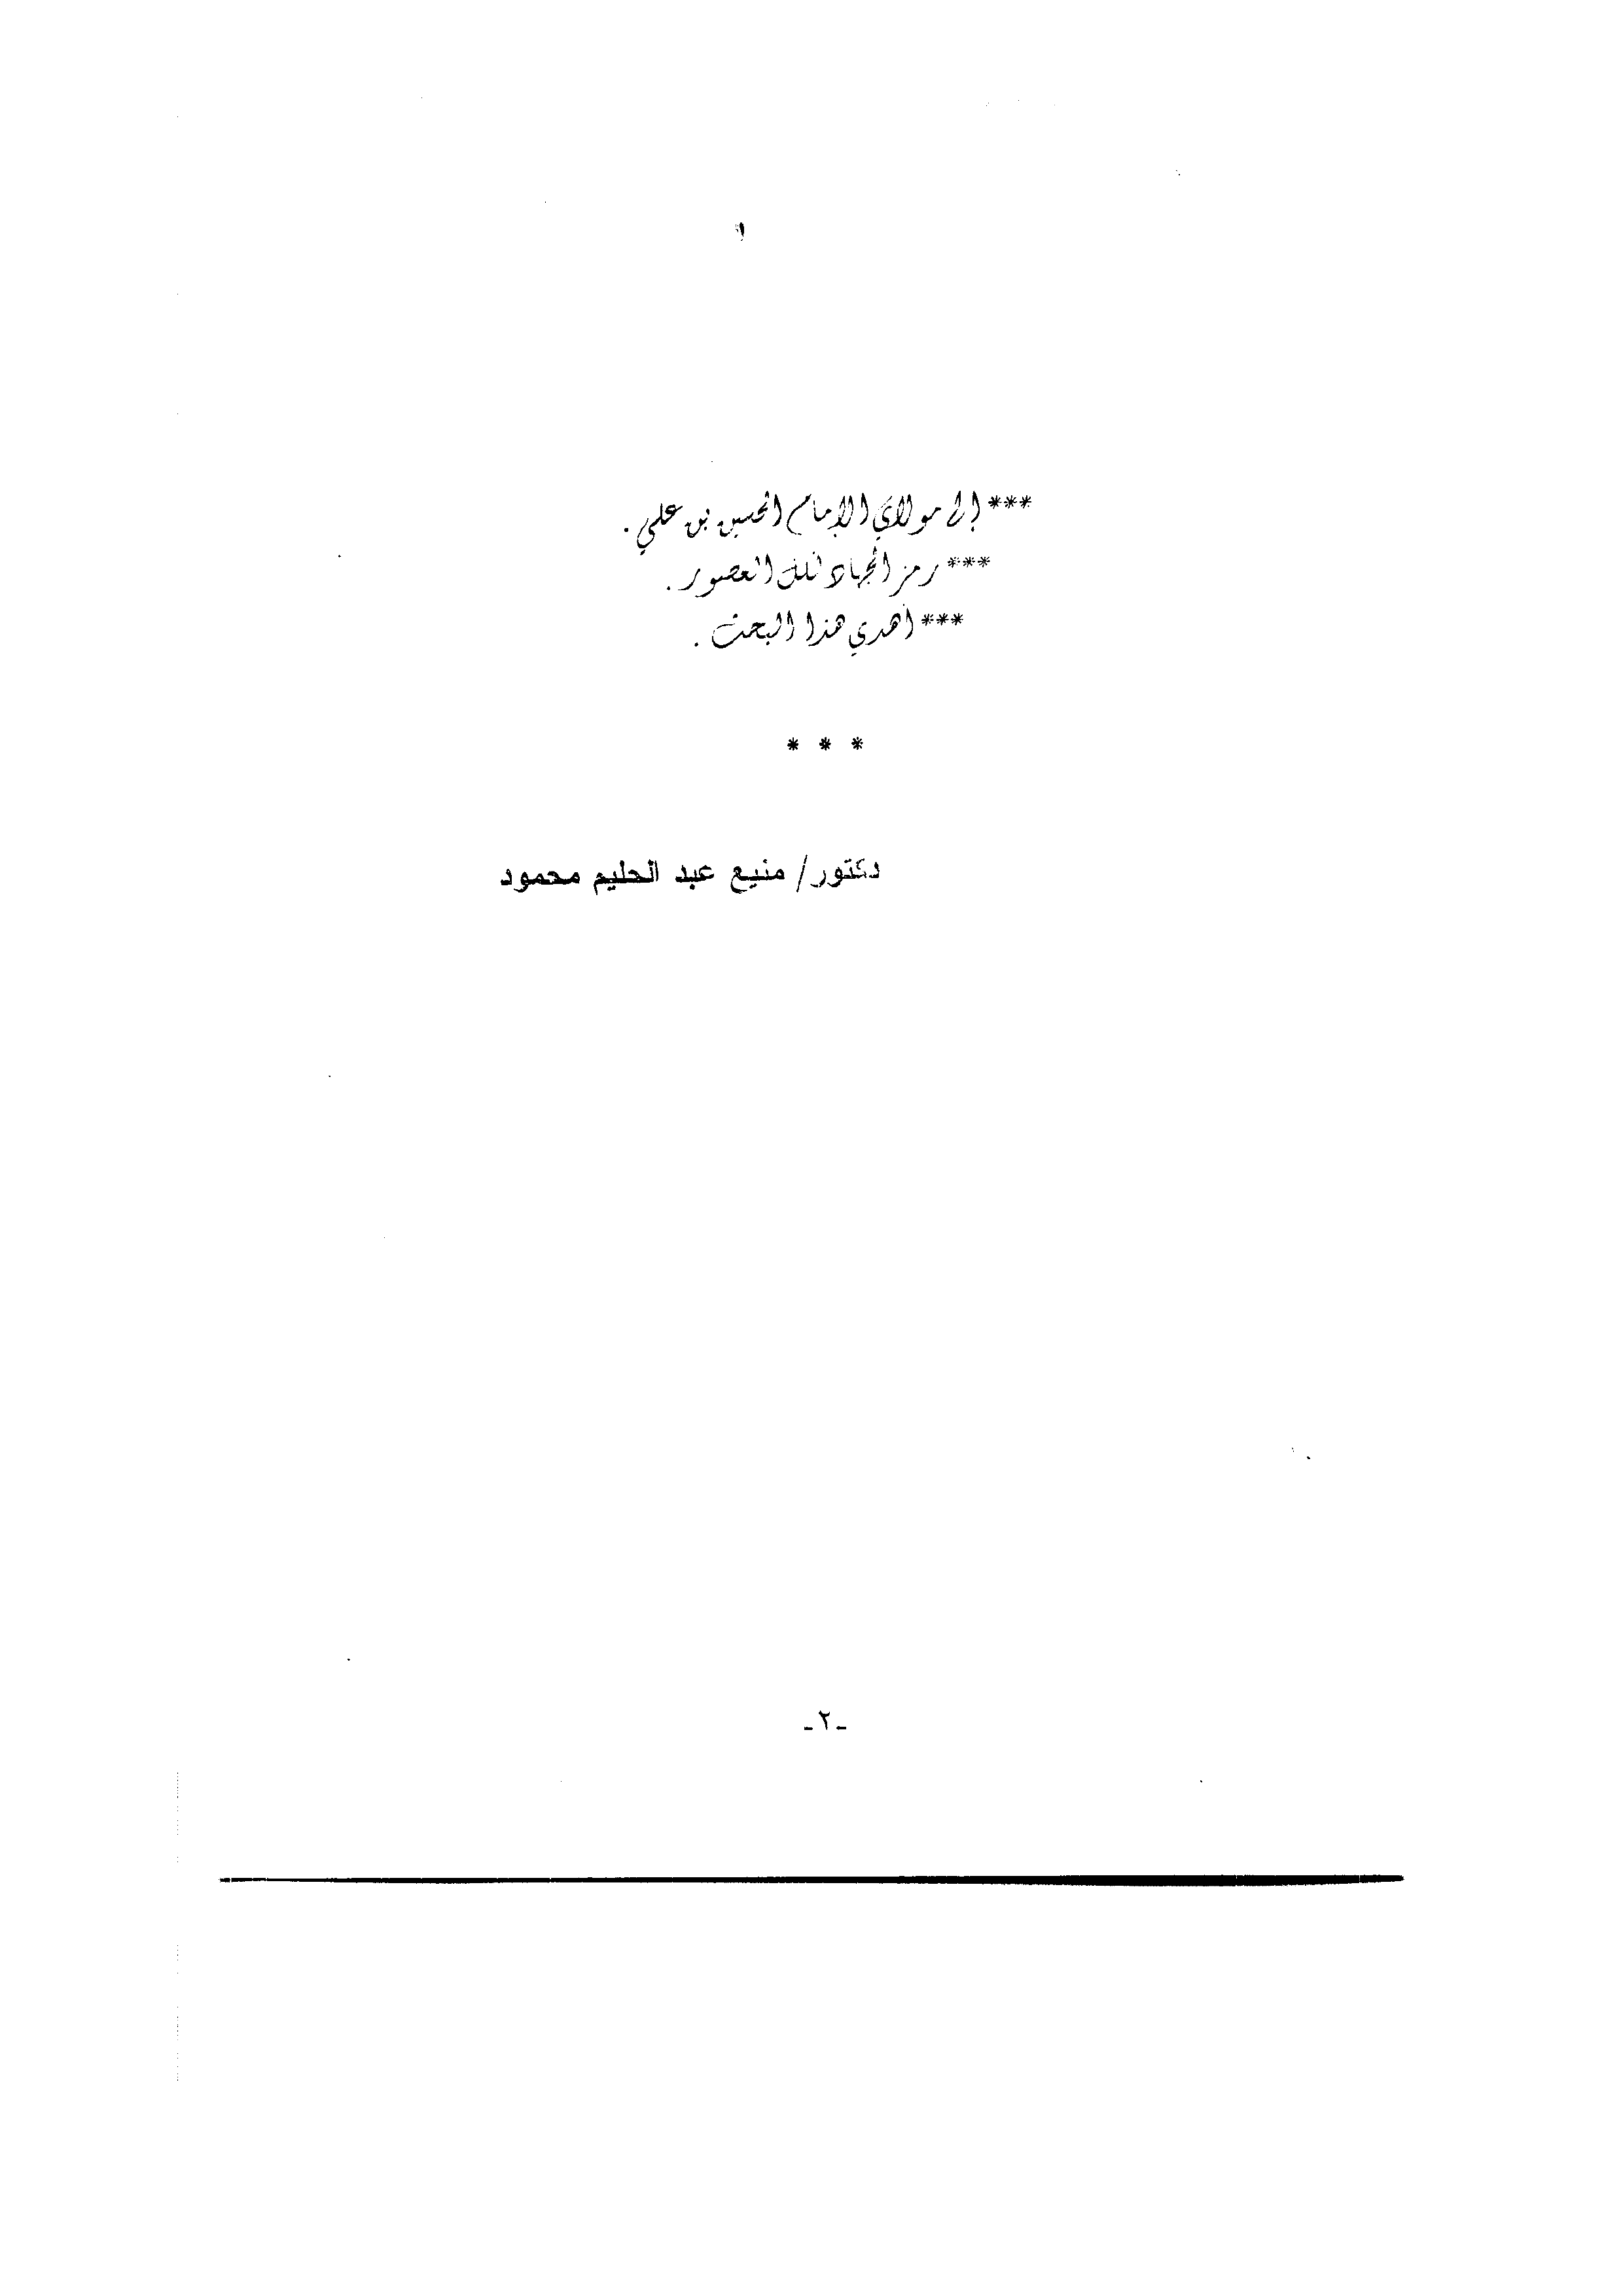 *** إلى مولاي الإمام الحسين بن علي .
*** رمز الجهاد لكل العصور .
*** أهدي هذا البحث .
* * *
دكتور/ منيع عبد الحليم محمود
-٢-